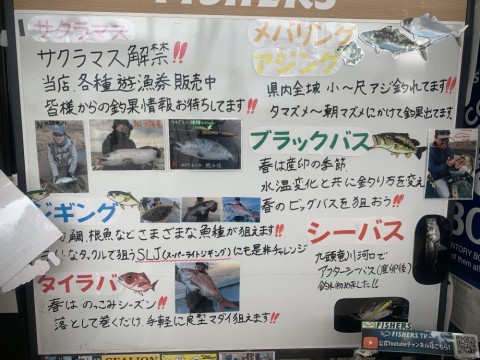 FISHERS
サクラマス
サクラマス解禁!!
当店、各種遊漁券販売中
皆様からの釣果情報お待ちしてます!!
メバリング
アジング
県内全域 小〜尺アジ釣れてます!!
タマズメ〜朝マズメにかけて釣果出てます。
ブラックバス
春は産卵の季節、
水温変化と共に釣り方を変え
春のビッグバスを狙おう!!
ジギング
鯛、根魚などさまざまな魚種が狙えます!!
タックルで狙うSLJ(スーパーライトジギング)にも是非チャレンジ
タイラバ
春はのっこみシーズン!!
落として巻くだけ、手軽に良型マダイ狙えます!!
シーバス
九頭竜川河口で
アフターシーバス(産卵後)
釣れ始めました!!
FISHERS
FISHERS TV
公式Youtubeチャンネルはこちら!